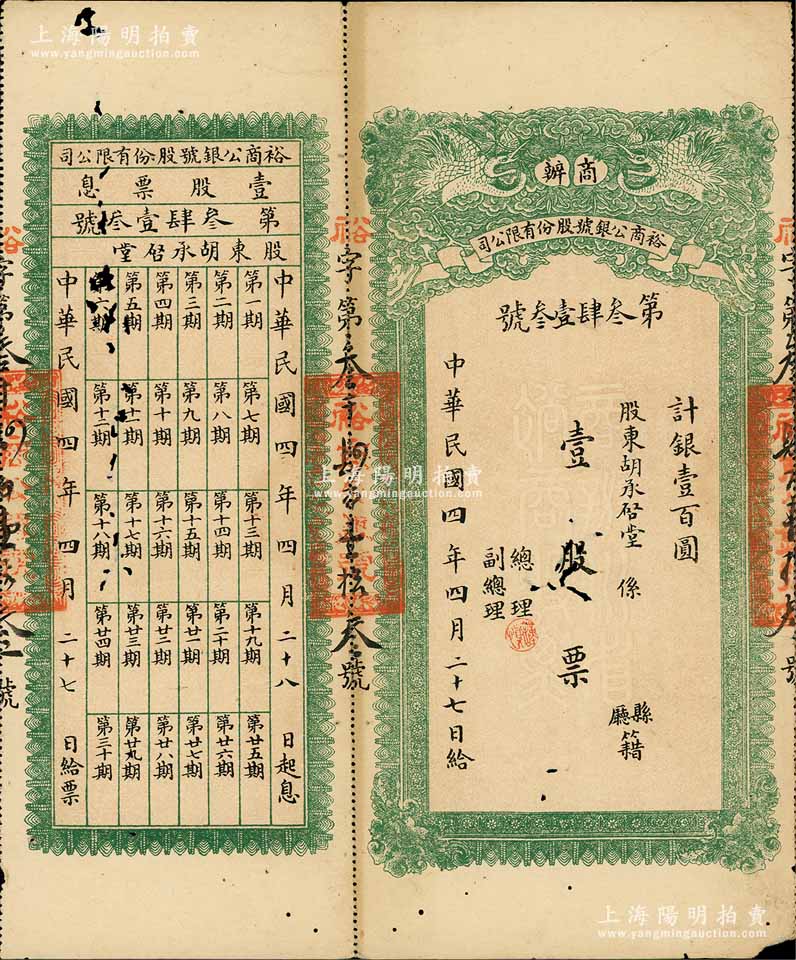 上海陽明拍賣
www.yangmingauction.com
商辦
裕商公銀號股份有限公司
第叁肆壹叁號
計銀壹百圓
股東胡承啓堂 係 縣廳籍
壹股票
總理
副總理
中華民國四年四月二十七日給
裕字第叁千肆百壹拾叁號
裕商公銀號股份有限公司
壹股票息
第叁肆壹叁號
股東胡承啓堂
中華民國四年四月二十八日起息
第一期 第七期 第十三期 第十九期 第廿五期
第二期 第八期 第十四期 第二十期 第廿六期
第三期 第九期 第十五期 第廿一期 第廿七期
第四期 第十期 第十六期 第廿二期 第廿八期
第五期 第十一期 第十七期 第廿三期 第廿九期
第六期 第十二期 第十八期 第廿四期 第三十期
中華民國四年四月二十七日給票
上海陽明拍賣
www.yangmingauction.com
上海陽明拍賣
www.yangmingauction.com